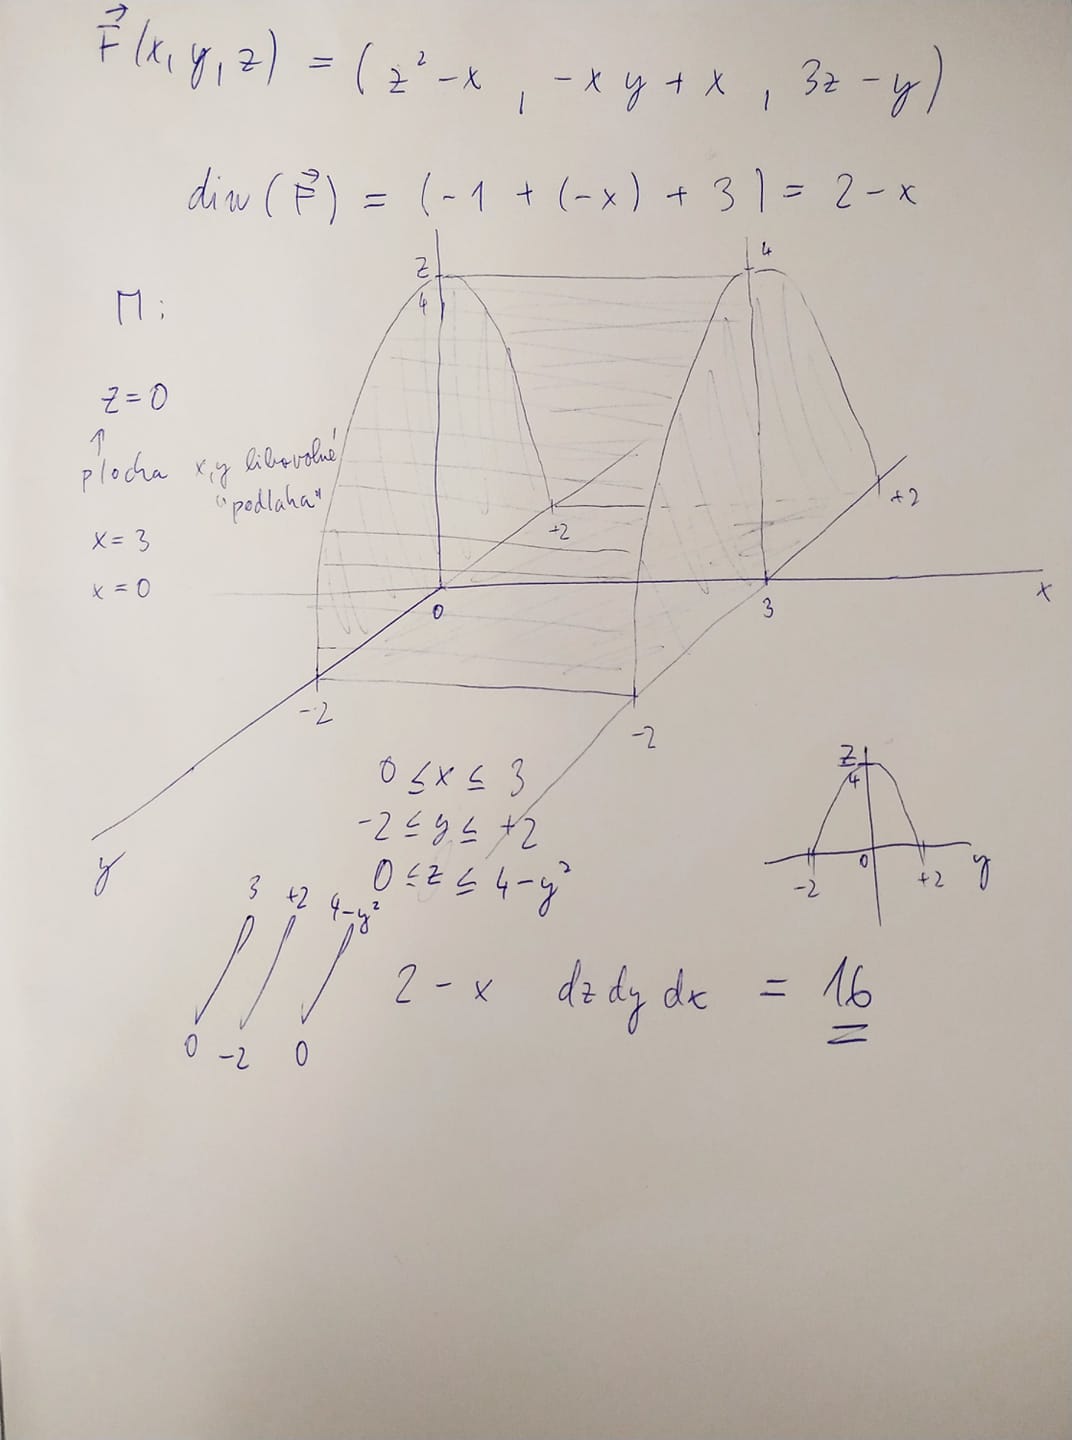 F⃗(x, y, z) = (z² - x , -xy + x , 3z - y)
div(F⃗) = (-1 + (-x) + 3) = 2 - x
M:
z
4
4
z=0
↑
plocha x,y libovolné
"podlaha"
x=3
x=0
+2
+2
0
3
x
-2
-2
y
0 ≤ x ≤ 3
-2 ≤ y ≤ +2
0 ≤ z ≤ 4-y²
z
4
0
-2
+2
y
3 +2 4-y²
∫ ∫ ∫ 2 - x dz dy dx = 16
0 -2 0